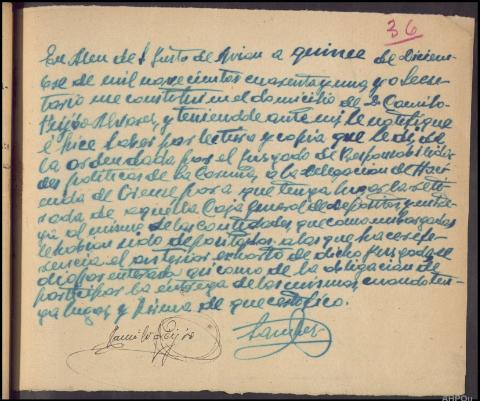 36
En Alen de S. Justo de Avion a quince de diciem-
bre de mil novecientos cuarenta y uno yo Secre-
tario me constitui en el domicilio de D. Camilo
Feijóo Alvarez, y teniendole ante mi le notifique
é hice saber por lectura y copia que le di, de
la ordenada por el Juzgado de Responsabilida-
des politicas de la Coruña, a la Delegacion de Haci-
enda de Orense para que tenga lugar la reti-
rada de aquella Caja general de depositos y entre-
ga al mismo de las cantidades, que como embargadas
le habian sido depositadas a las que hace refe-
rencia el anterior exhorto de dicho Juzgado, se
dio por enterado asi como de la obligacion de
participar la entrega de las mismas cuando ten-
ga lugar, y firma de que certifico.
Camilo Feijóo